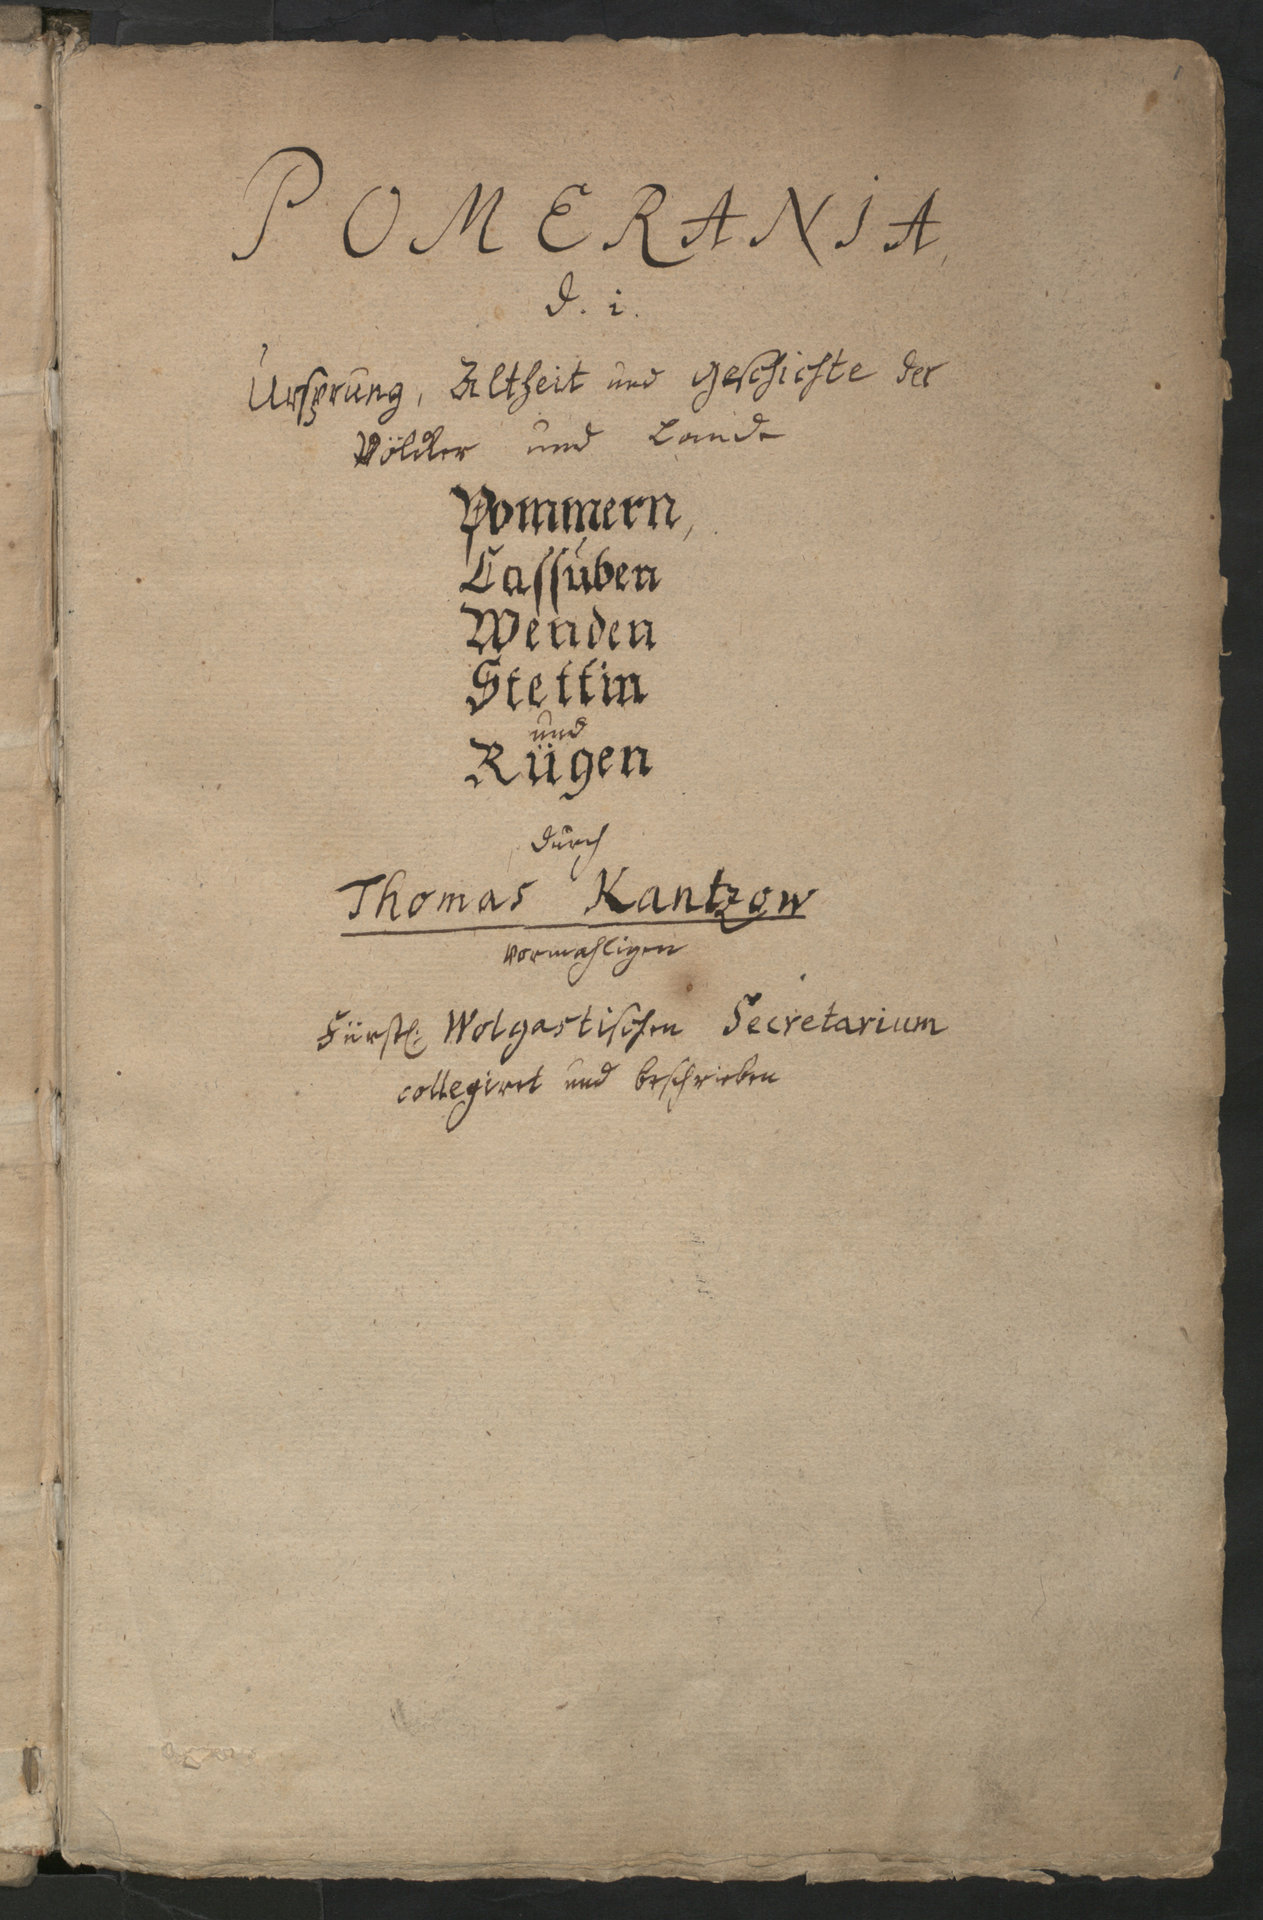 1
POMERANIA,
d. i.
Ursprung, Altheit und Geschichte der
Völcker und Lande
Pommern,
Cassuben
Wenden
Stettin
und
Rügen
durch
Thomas Kantzow
vormahligen
Fürstl. Wolgastischen Secretarium
collegiret und beschrieben